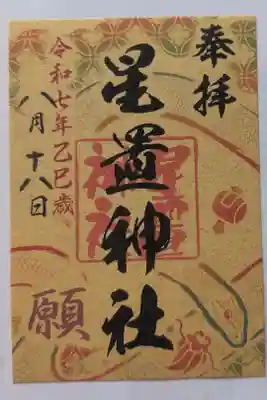 奉拝
星置神社
令和七年乙巳歳
八月十八日
願